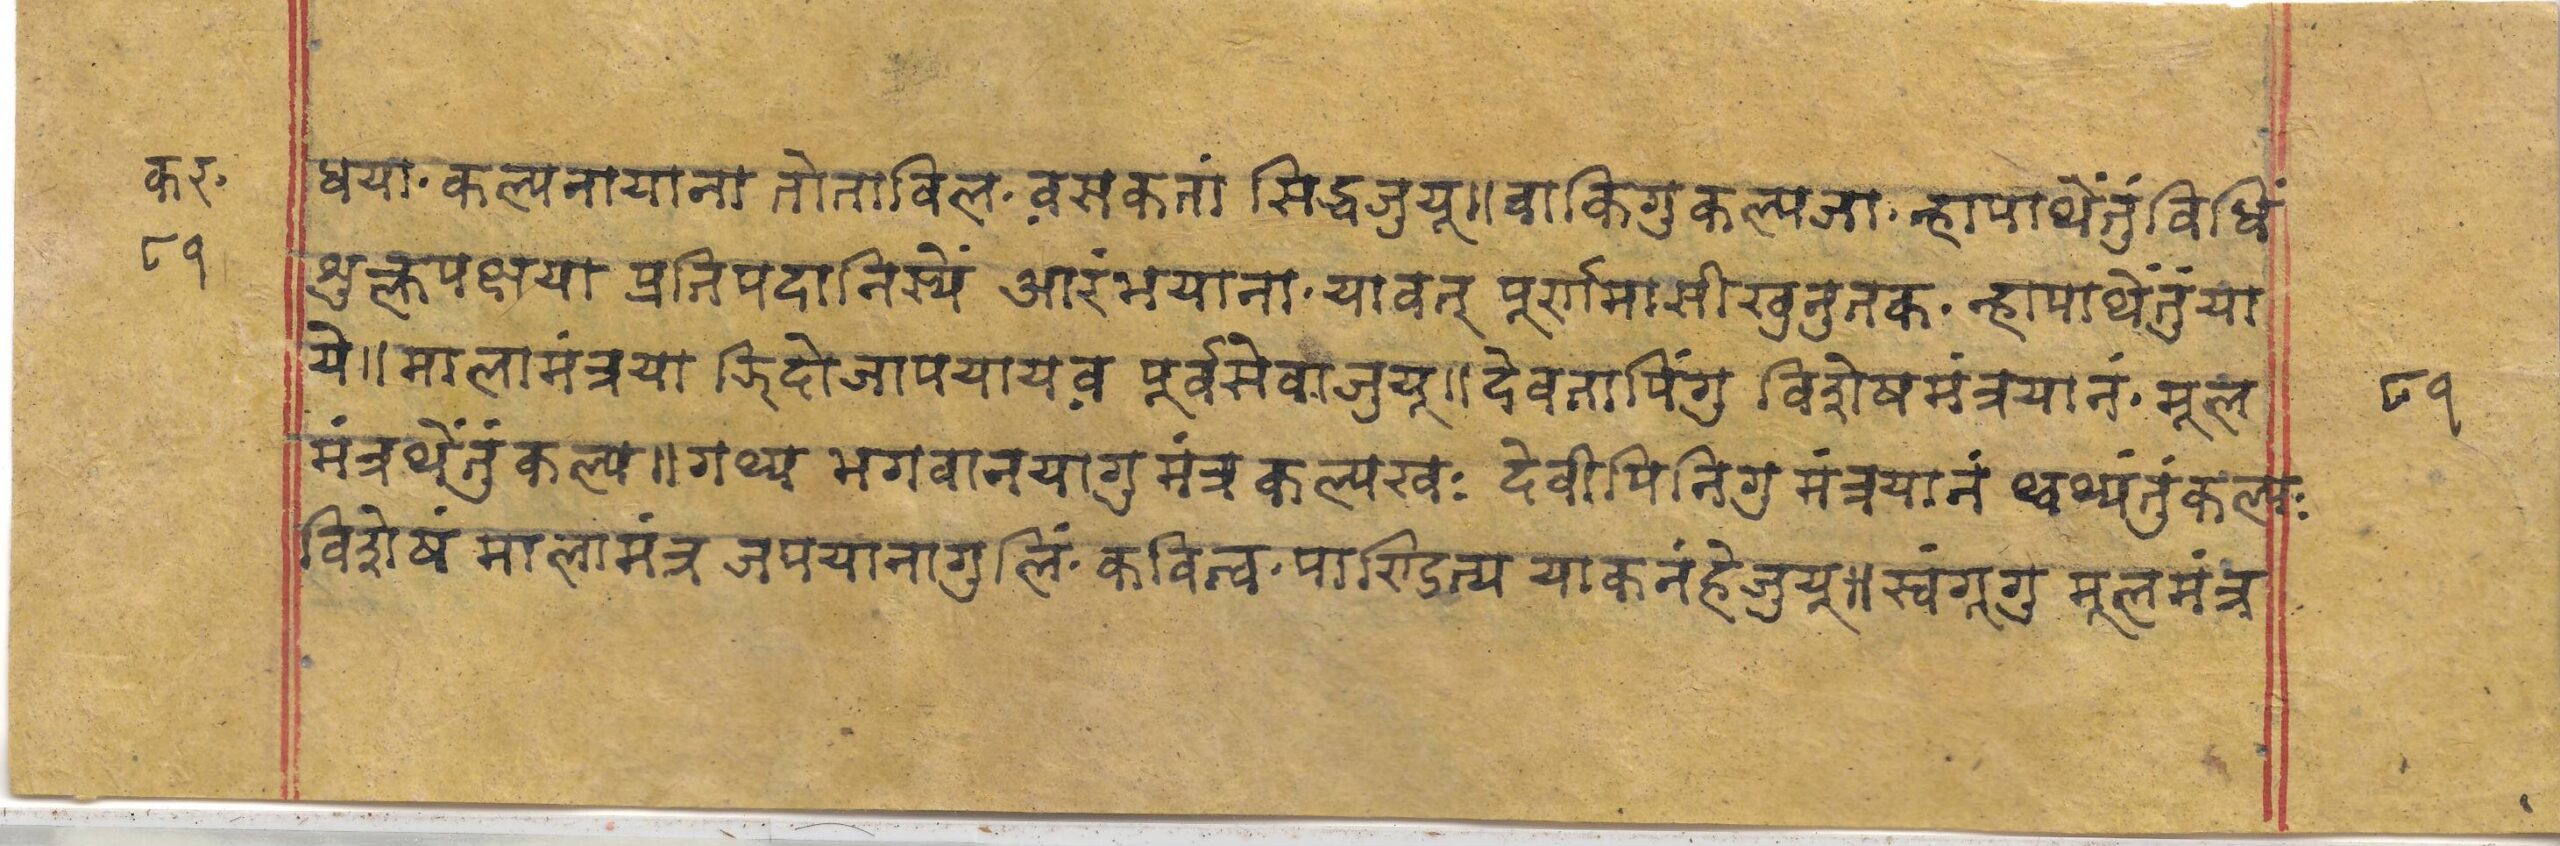 करु·
८१
धया·कल्पनायाना तोताविल·व़सकतां सिद्धजुयू॥वाकिगुकल्पजा·न्हापाथेंतुंविधिं
शुल्कपक्षया प्रतिपदानिस्यें आरंभयाना·यावत् पूर्णमासीखुनुतक·न्हापाथेंतुंया
ये॥मालामंत्रया जापयायव़ पूर्वसेवाजुयू॥देवतापिंगु विशेषमंत्रयानं·मूल
८१
मंत्रथेंतुंकल्प॥गथ्य भगवानयागु मंत्र कल्पखः देवीपिनिगु मंत्रयानं थ्वथ्यंतुंकल्पः
विशेषं मालामंत्र जपयानागुलिं·कवित्व·पाण्डित्य याकनंहेजुयू॥स्वंगूगु मूलमंत्र